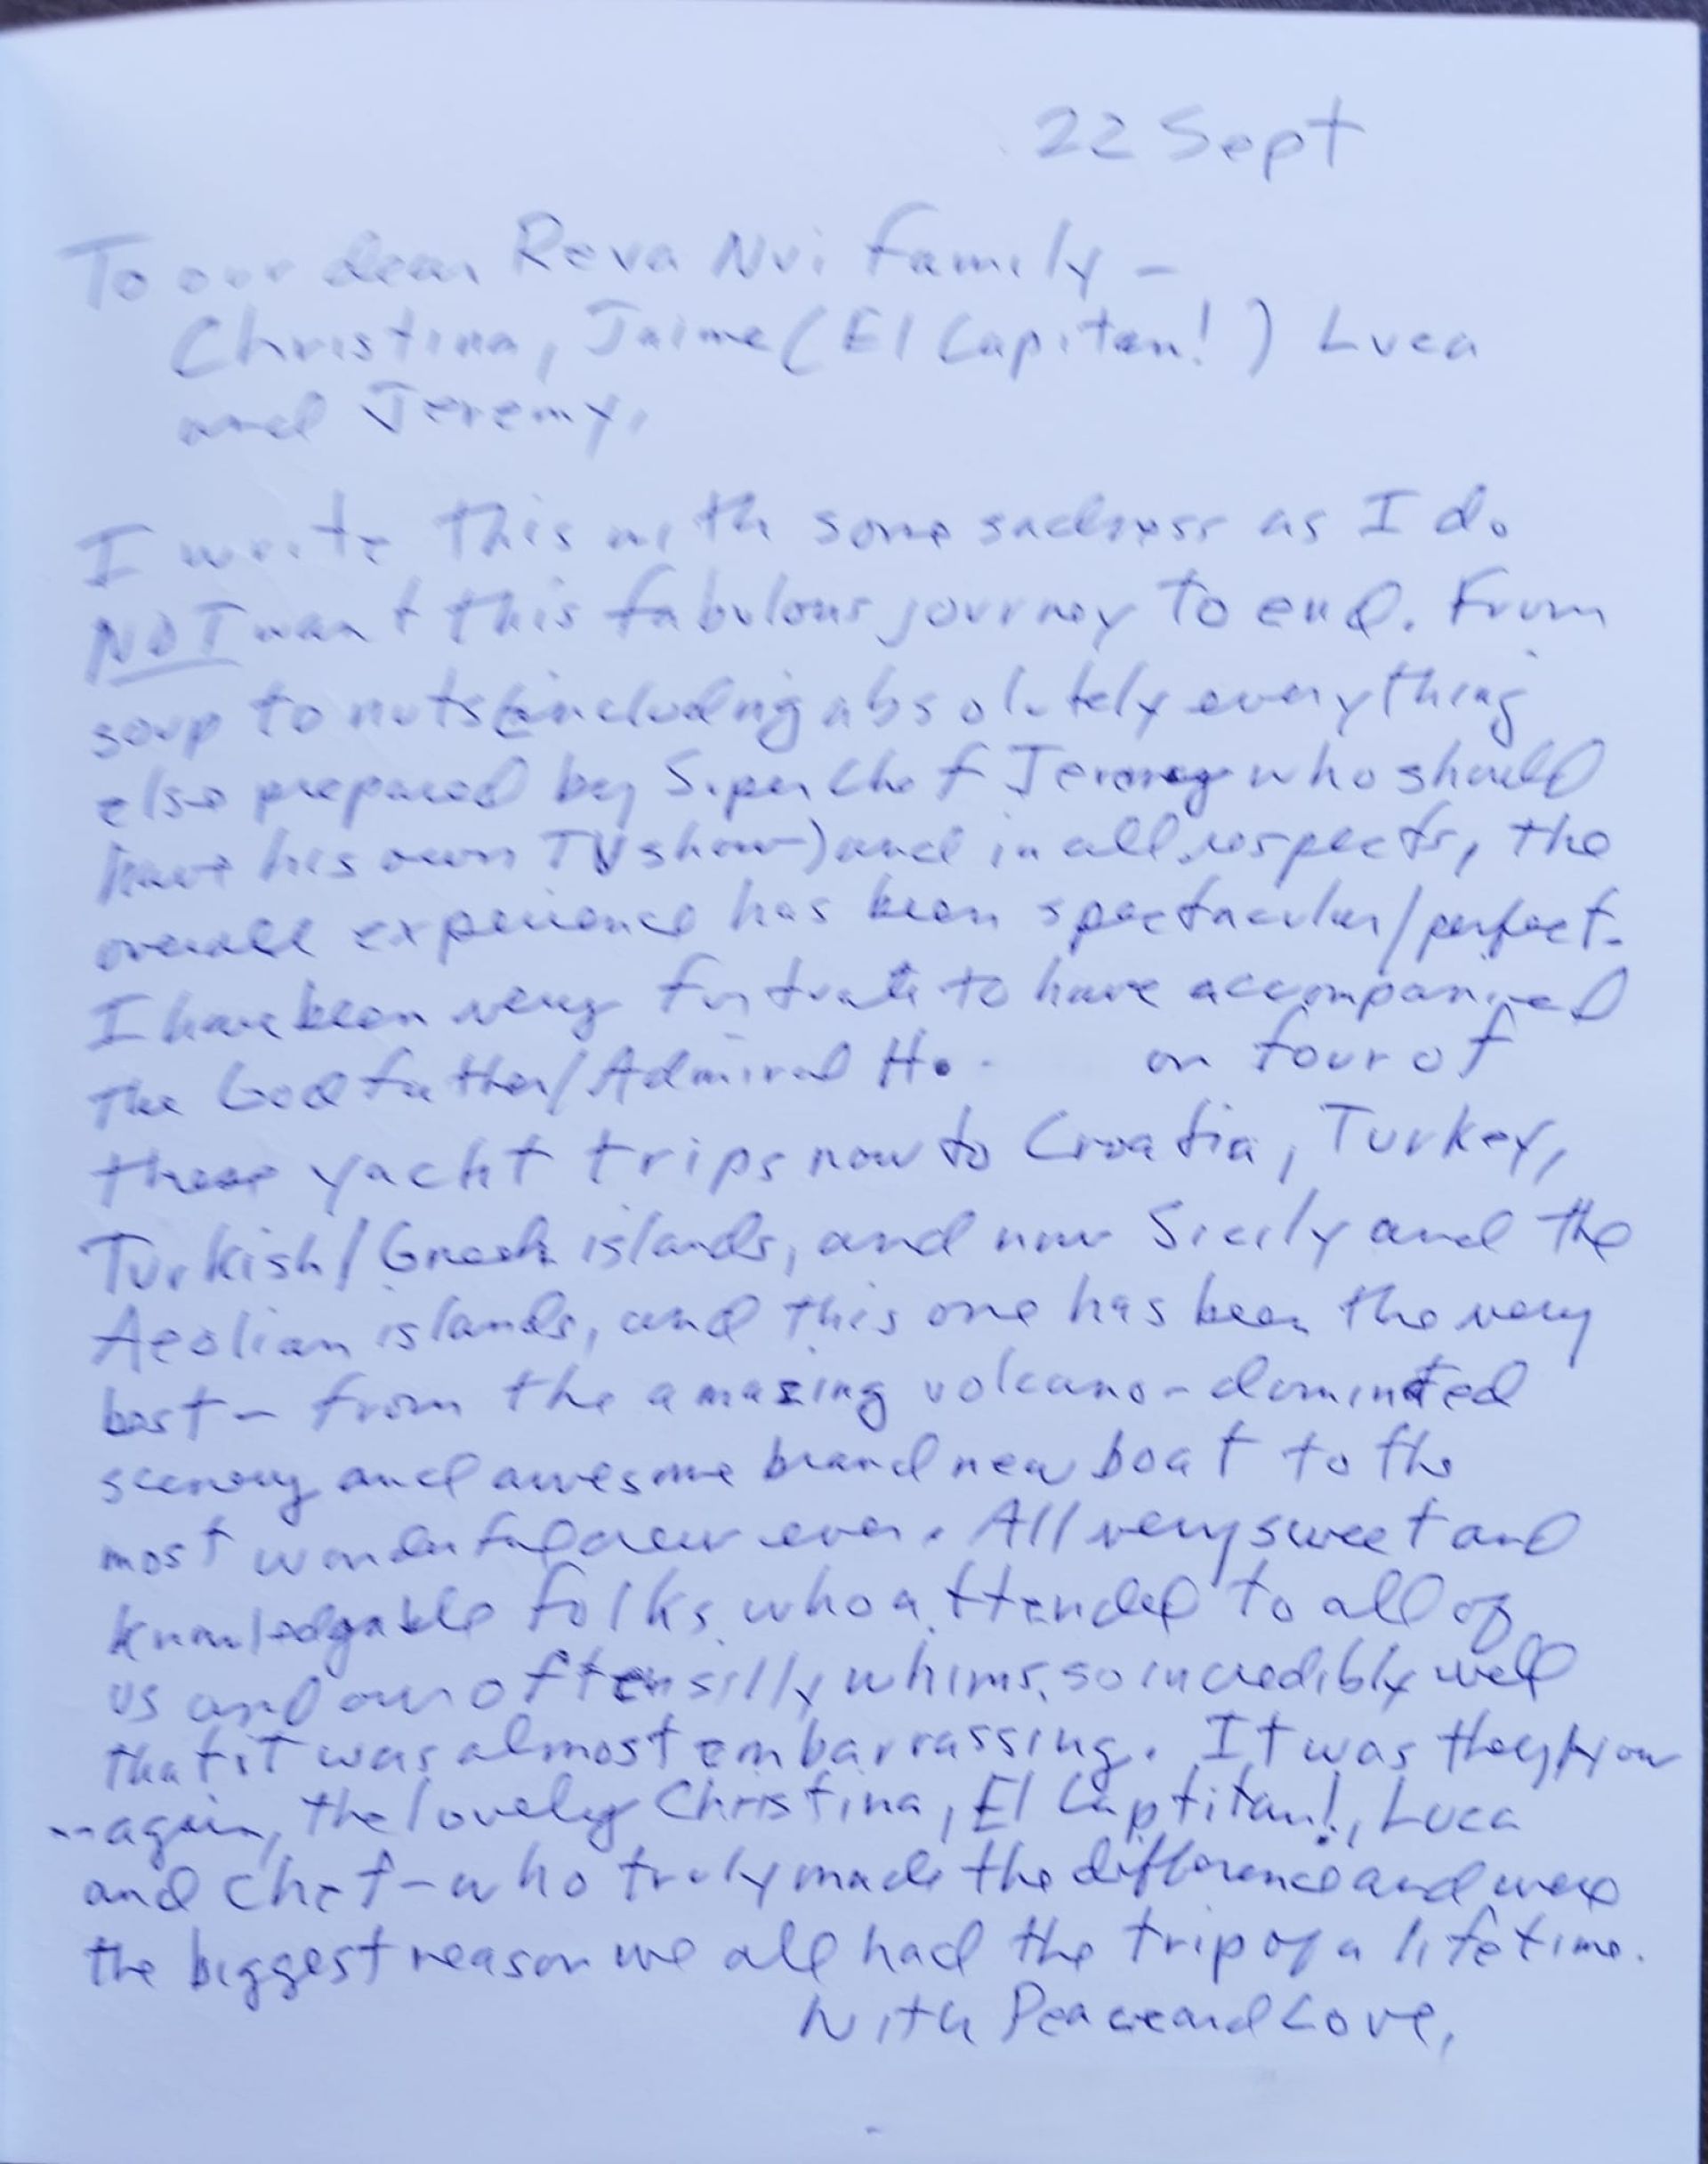 22 Sept
To our dear Reva Nui Family –
Christina, Jaime (El Capitan!) Luca
and Jeremy,
I write this with some sadness as I do
NOT want this fabulous journey to end. From
soup to nuts (including absolutely everything
else prepared by Super Chef Jeremy who should
have his own TV show) and in all respects, the
overall experience has been spectacular/perfect.
I have been very fortunate to have accompanied
the Godfather/Admiral Ho. on four of
these yacht trips now to Croatia, Turkey,
Turkish/Greek islands, and now Sicily and the
Aeolian islands, and this one has been the very
best – from the amazing volcano-dominated
scenery and awesome brand new boat to the
most wonderful crew ever. All very sweet and
knowledgable folks who attended to all of
us and our often silly whims, so incredibly well
that it was almost embarrassing. It was they/you
... again, the lovely Christina, El Captitan!, Luca
and chef – who truly made the difference and were
the biggest reason we all had the trip of a lifetime.
With Peace and Love,